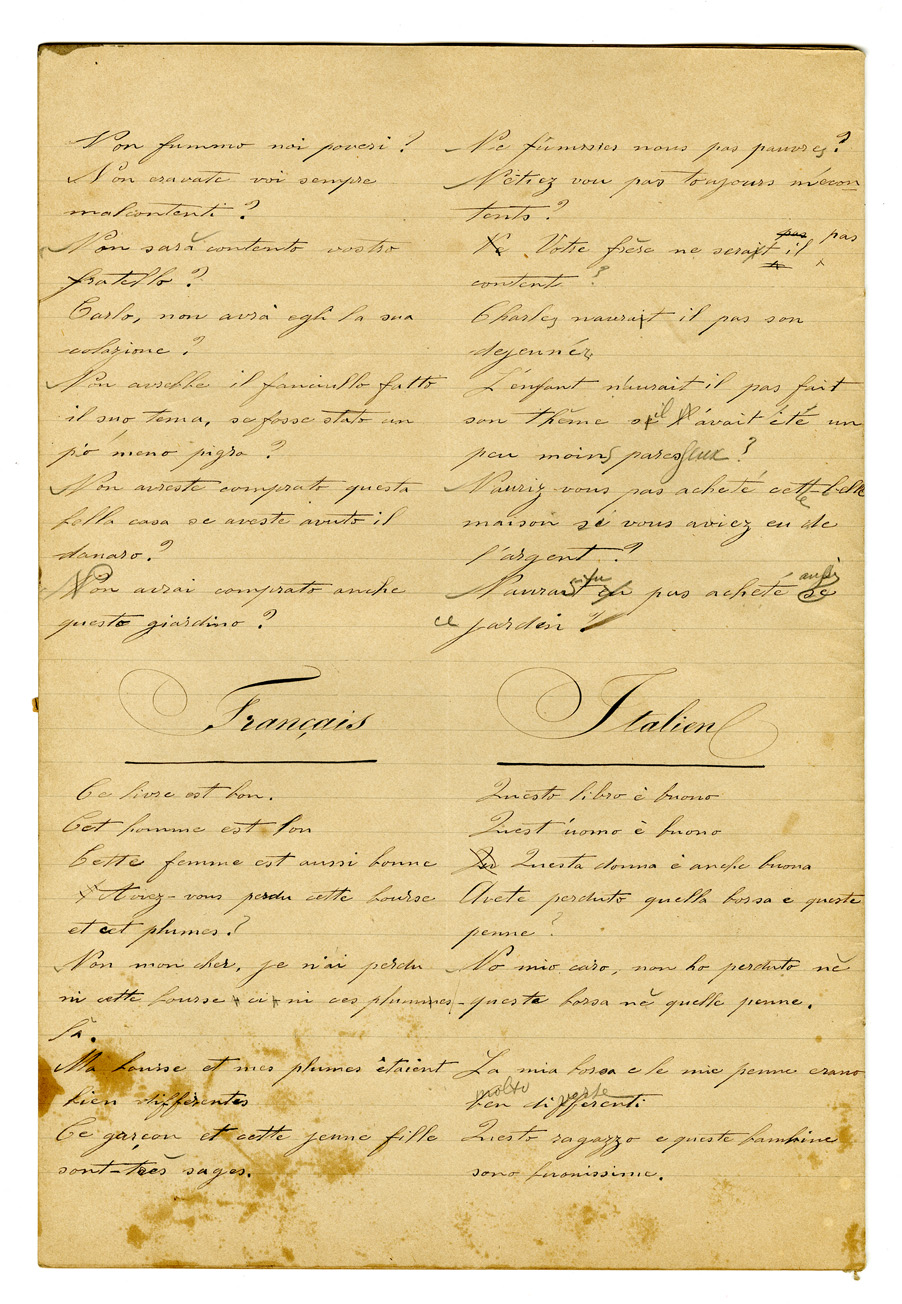 Non fummo noi poveri ?
Non eravate voi sempre
malcontenti ?
Non sarà contento vostro
fratello ?
Carlo, non avrà egli la sua
colazione ?
Non avrebbe il fanciullo fatto
il suo tema, se fosse stato un
pò meno pigro ?
Non avreste comprato questa
bella casa se aveste avuto il
danaro ?
Non avrai comprato anche
questo giardino ?
Ne fûmes nous pas pauvres ?
N'étiez vou pas toujours mécon
tents ?
Votre frère ne serait il pas
content ?
Charles naurait il pas son
dejeuné
L'enfant n'aurait il pas fait
son thême s'il avait été un
peu moins paresseux ?
Nauriz-vous pas acheté cette belle
maison si vous aviez eu de
l'argent ?
N'auras tu pas acheté aussi
ce jardin ?
Français
Ce livre est bon.
Cet homme est bon
Cette femme est aussi bonne
Avez-vous perdu cette bourse
et cet plumes ?
Non mon cher, je n'ai perdu
ni cette bourse ci ni ces plumes-
là.
Ma bourse et mes plumes êtaient
bien différentes
Ce garçon et cette jeune fille
sont très sages.
Italien
Questo libro è buono
Quest'uomo è buono
Questa donna è anche buona
Avete perduto quella borsa e queste
penne ?
No mio caro, non ho perduto nè
questa borsa nè quelle penne.
La mia borsa e le mie penne erano
molto
ben differenti
Questo ragazzo e queste bambine
sono buonissime.